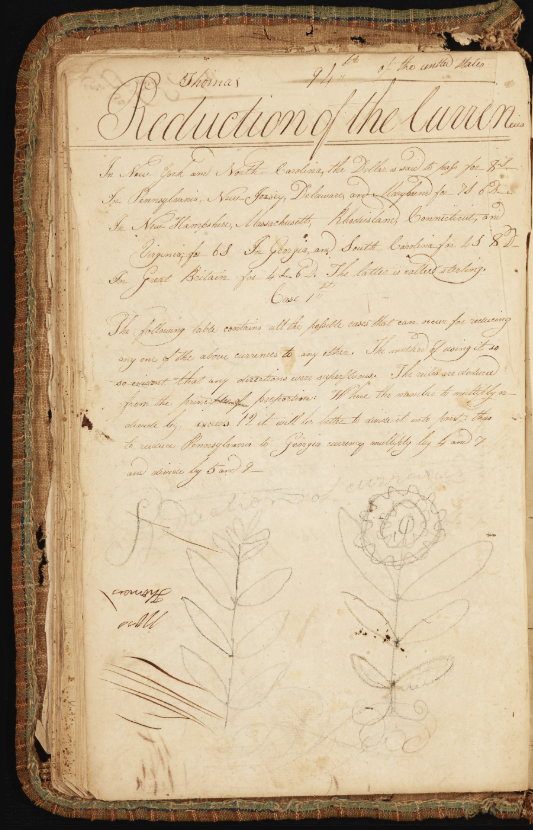 Thomas 94 of the united States
Reduction of the Curren
In New York and North Carolina, the Dollar is said to pass for 8S
In Pennsylvania, New Jersey, Delaware, and Maryland for 7S 6d
In New Hampshire, Massachusetts, Rhodeisland, Connecticut, and
Virginia, for 6S In Georgia, and South Carolina for 4S 8D
In Great Britain for 4S 6d. The latter is called sterling.
Case 1st
The following table contains all the possible cases that can occur for reducing
any one of the above currencies to any other. The method of using it is
so evident that any directions were superfluous. The rules are deduced
from the principles of proportion. When the number to multiply or
divide by, excess 12 it will be better to divide it into parts; thus
to reduce Pennsylvania to Georgia currency multiply by 4 and 7
and divide by 5 and 9
Reduction of curren
Thomas